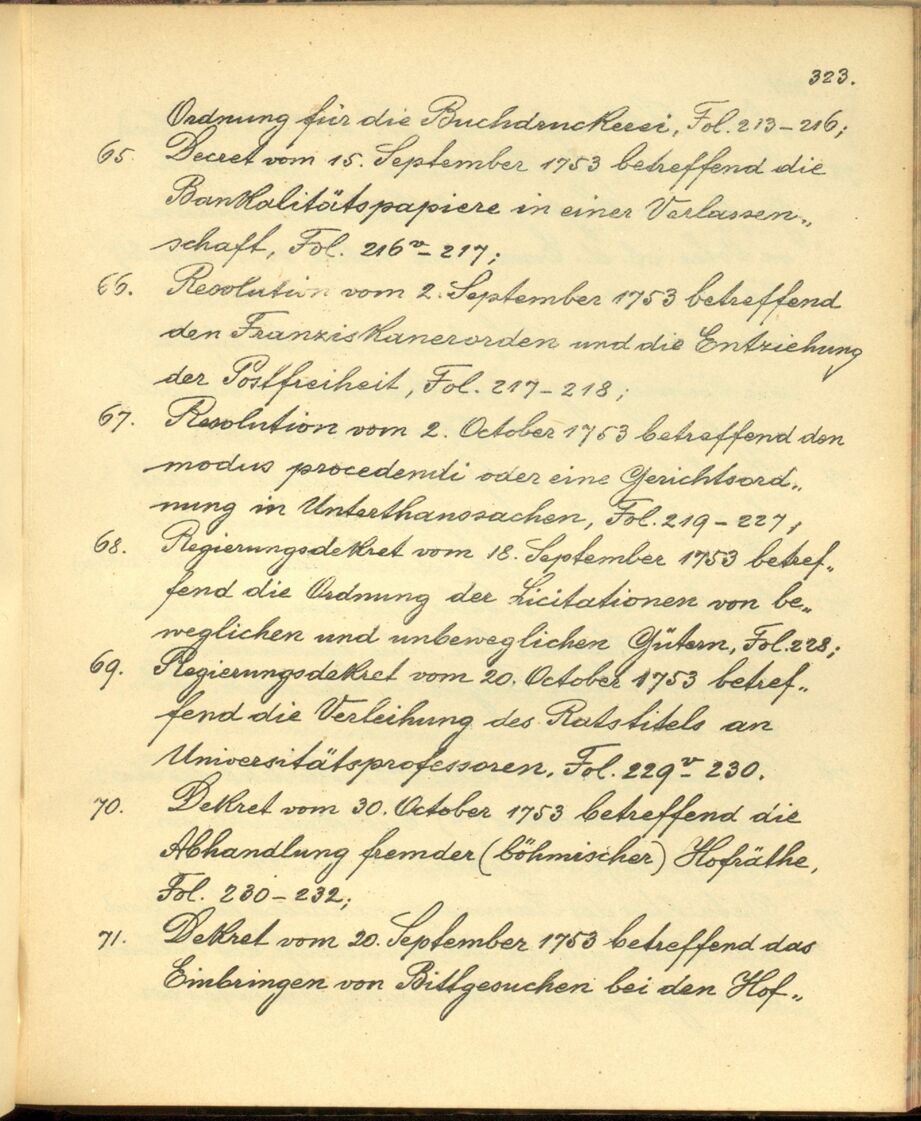 323.
Ordnung für die Buchdruckerei, Fol. 213 – 216;
65. Decret vom 15. September 1753 betreffend die
Bankalitätspapiere in einer Verlassen„
schaft, Fol. 216ᵛ – 217;
66. Resolution vom 2. September 1753 betreffend
den Franziskanerorden und die Entziehung
der Postfreiheit, Fol. 217 – 218;
67. Resolution vom 2. October 1753 betreffend den
modus procedendi oder eine Gerichtsord„
nung in Unterthanssachen, Fol. 219 – 227;
68. Regierungsdekret vom 18. September 1753 betref„
fend die Ordnung der Licitationen von be„
weglichen und unbeweglichen Gütern, Fol. 228;
69. Regierungsdekret vom 20. October 1753 betref„
fend die Verleihung des Ratstitels an
Universitätsprofessoren, Fol. 229ᵛ – 230.
70. Dekret vom 30. October 1753 betreffend die
Abhandlung fremder (böhmischer) Hofräthe,
Fol. 230 – 232;
71. Dekret vom 20. September 1753 betreffend das
Einbringen von Bittgesuchen bei den Hof„